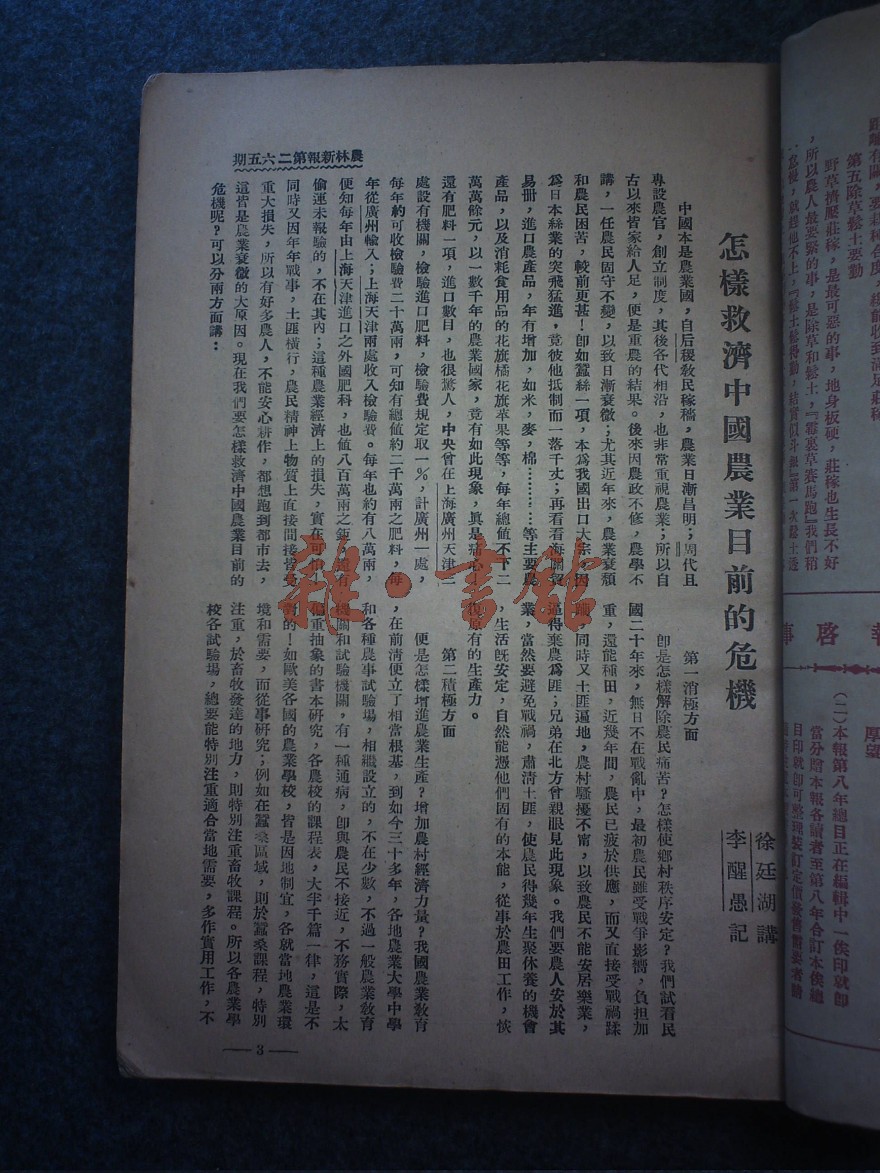 怎樣救濟中國農業目前的危機
徐廷湖講
李醒愚記
中國本是農業國，自后稷敎民稼穡，農業日漸昌明；周代且
專設農官，創立制度，其後各代相沿，也非常重視農業；所以自
古以來皆家給人足，便是重農的結果。後來因農政不修，農學不
講，一任農民固守不變，以致日漸衰微；尤其近年來，農業衰頹
和農民困苦，較前更甚！卽如蠶絲一項，本爲我國出口大宗，因
爲日本絲業的突飛猛進，竟彼他抵制而一落千丈；再看看海關貿
易册，進口農產品，年有增加，如米，麥，棉…………等主要農
產品，以及消耗食用品的花旗橘花旗苹果等等，每年總值不下二
萬萬餘元，以一數千年的農業國家，竟有如此現象，眞是痛心
還有肥料一項，進口數目，也很驚人，中央曾在上海廣州天津三
處設有機關，檢驗進口肥料，檢驗費規定取一％，計廣州一處，
每年約可收檢驗費二十萬兩，可知有總值約二千萬兩之肥料，每
年從廣州輸入；上海天津兩處收入檢驗費。每年也約有八萬兩，
便知每年由上海天津進口之外國肥料，也値八百萬兩之鉅；還有
偷運未報驗的，不在其內；這種農業經濟上的損失，實在可怕！
同時又因年年戰事，土匪橫行，農民精神上物質上直接間接皆受
重大損失，所以有好多農人，不能安心耕作，都想跑到都市去，
這皆是農業衰微的大原因。現在我們要怎樣救濟中國農業目前的
危機呢？可以分兩方面講：
第一消極方面
卽是怎樣解除農民痛苦？怎樣使鄉村秩序安定？我們試看民
國二十年來，無日不在戰亂中，最初農民雖受戰爭影響，負担加
重，還能種田，近幾年間，農民已疲於供應，而又直接受戰禍蹂
躪，同時又土匪遍地，農村騷擾不甯，以致農民不能安居樂業，
逼得棄農爲匪；兄弟在北方曾親眼見此現象。我們要農人安於其
業，當然要避免戰禍，肅清土匪，使農民得幾年生聚休養的機會
，生活旣安定，自然能憑他們固有的本能，從事於農田工作，恢
復原有的生產力。
第二積極方面
便是怎樣增進農業生產？增加農村經濟力量？我國農業敎育
，在前淸便立了相當根基，到如今三十多年，各地農業大學中學
和各種農事試驗場，相繼設立的，不在少數，不過一般農業敎育
機關和試驗機關，有一種通病，卽與農民不接近，不務實際，太
偏重抽象的書本研究，各農校的課程表，大半千篇一律，這是不
對的！如歐美各國的農業學校，皆是因地制宜，各就當地農業環
境和需要，而從事研究；例如在蠶桑區域，則於蠶桑課程，特別
注重，於畜牧發達的地力，則特別注重畜牧課程。所以各農業學
校各試驗場，總要能特別注重適合當地需要，多作實用工作，不
農林新報第二六五期
3
第五除草鬆土要勤
野草擠壓莊稼，是最可惡的事，地身板硬，莊稼也生長不好
，所以農人最要緊的事，是除草和鬆土，『霧裏草賽馬跑』我們稍
報啓事
厚望
(二)本報第八年總目正在編輯中一俟印就卽
當分贈本報各讀者至第八年合訂本俟總
雜·書館